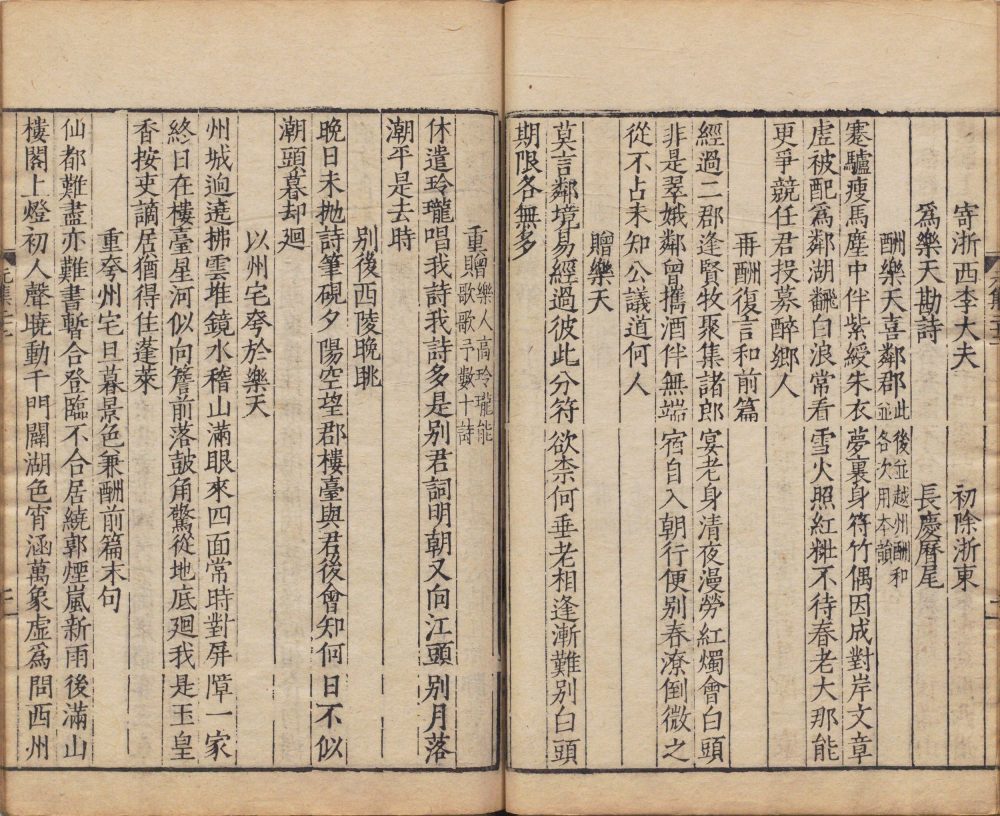 寄浙西李大夫　初除浙東
爲樂天勘詩　長慶曆尾
酬樂天喜鄰郡
此後並越州酬和
並各次用本韻
蹇驢瘦馬塵中伴紫綬朱衣夢裏身符竹偶因成對岸文章
虛被配爲鄰湖翻白浪常看雪火照紅糚不待春老大那能
更爭競任君投募醉鄉人
再酬復言和前篇
經過二郡逢賢牧聚集諸郎宴老身清夜漫勞紅燭會白頭
非是翠娥鄰曾攜酒伴無端宿自入朝行便別春潦倒微之
從不占未知公議道何人
贈樂天
莫言鄰境易經過彼此分符欲柰何垂老相逢漸難別白頭
期限各無多
重贈
樂人高玲瓏能
歌歌予數十詩
休遣玲瓏唱我詩我詩多是別君詞明朝又向江頭別月落
潮平是去時
別後西陵晚眺
晚日未抛詩筆硯夕陽空望郡樓臺與君後會知何日不似
潮頭暮却迴
以州宅夸於樂天
州城迥遶拂雲堆鏡水稽山滿眼來四面常時對屏障一家
終日在樓臺星河似向簷前落鼓角驚從地底迴我是玉皇
香按吏謫居猶得住蓬萊
重夸州宅旦暮景色兼酬前篇末句
仙都難盡亦難書暫合登臨不合居繞郭煙嵐新雨後滿山
樓閣上燈初人聲曉動千門闢湖色宵涵萬象虛爲問西州